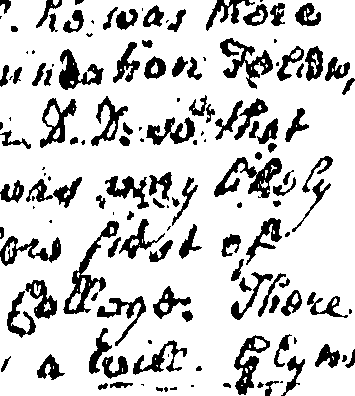 . he was more
undation Fellow,
D. D. so that
was very likely
ors first of
College. There
a Will. Glyms